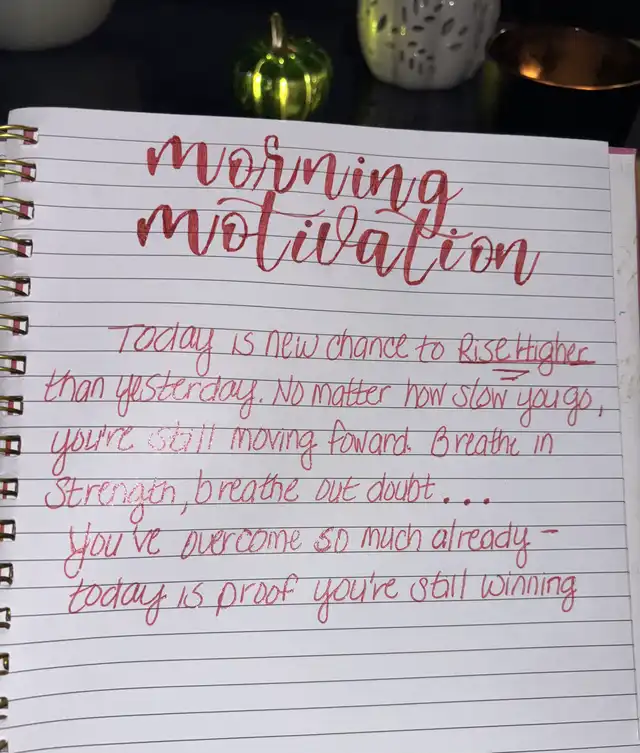 morning
motivation
Today is new chance to Rise Higher
than yesterday. No matter how slow you go,
you're still moving foward. Breathe in
Strength, breathe out doubt...
You've overcome so much already -
today is proof you're still winning